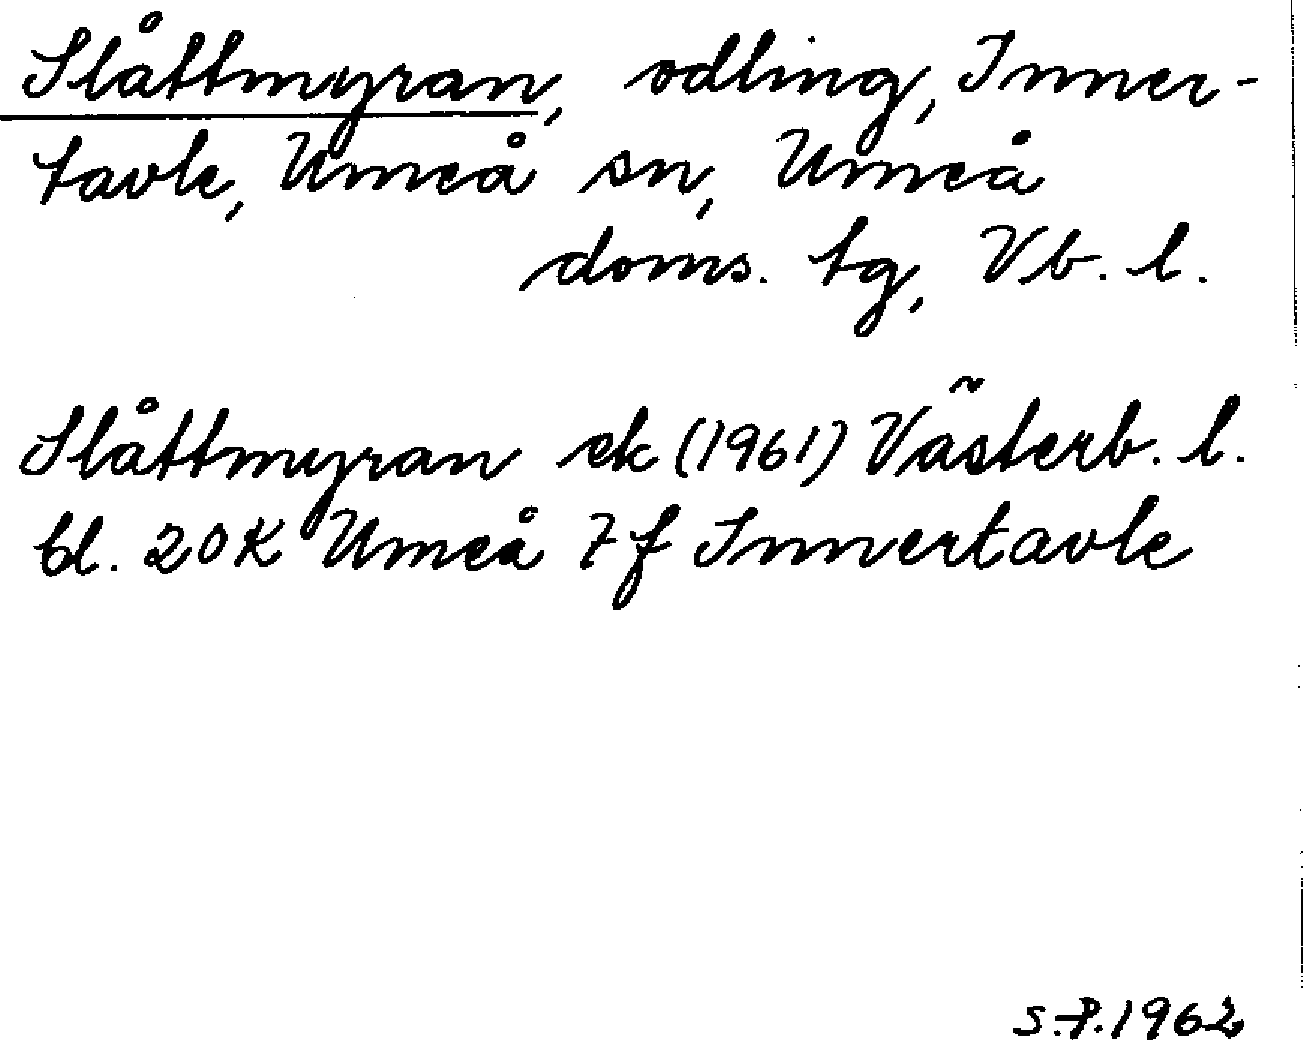 Slåttmyran, odling, Inner-
tavle, Umeå sn, Umeå
doms. tg, Vb. l.
Slåttmyran ek (1961) Västerb. l.
bl. 20K Umeå 7f Innertavle
S.P. 1962